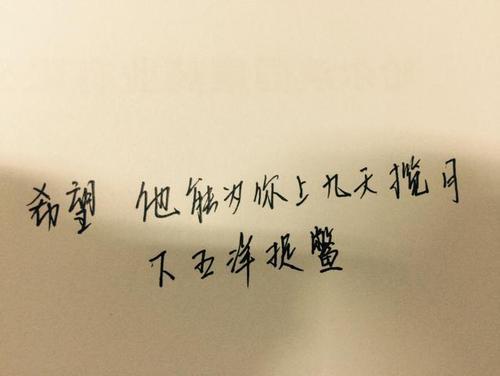 希望 他能为你上九天揽月
下五洋捉鳖